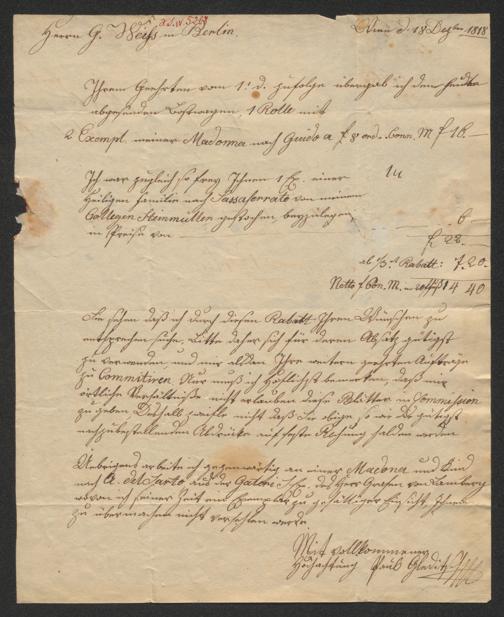 Herrn G. Weiss in Berlin
Wien d. 18 Dezber 1818
Ihrem Geehrten vom 1t d. zufolge übergab ich dem heute
abgehenden Postwagen, 1 Rolle mit
2 Exempl. meiner Madonna nach Guido a f 8 ord. Conv. M f 16.—
Ich war zugleich so frey Ihnen 1 Ex. einer
Heiligen Familie nach Sassaferrato von meinem
Collegen Steinmüller gestochen, beyzulegen,
im Preise von 6
f 22.—
ab 1/3 Rabatt: 7.20.
Netto f Con. M. 14 40
Sie sehen daß ich durch diesen Rabatt Ihren Wünschen zu
entsprechen suche, bitte daher sich für deren Absatz gütigst
zu verwenden, und mir alsdan Ihre weitern geehrten Aufträge
zu Commitiren. Nur muß ich höflichst bemerken, daß mir
örtliche Verhältniße nicht erlauben diese Blätter in Commission
zu geben Deshalb zweifle nicht daß Sie obige so wie die gütigst
nachzubestellenden Abdrücke auf feste Rechnung halten werden
Uebrigens arbeite ich gegenwärtig an einer Madona und Kind
nach A. del Sarto aus der Galerie des Herr Grafen von Lamberg
wovon ich seiner Zeit ein Exemplar zu gefälliger Einsicht Ihnen
zu übermachen nicht verfehlen werde.
Mit vollkommener
Hochachtung Paul Gleditsch